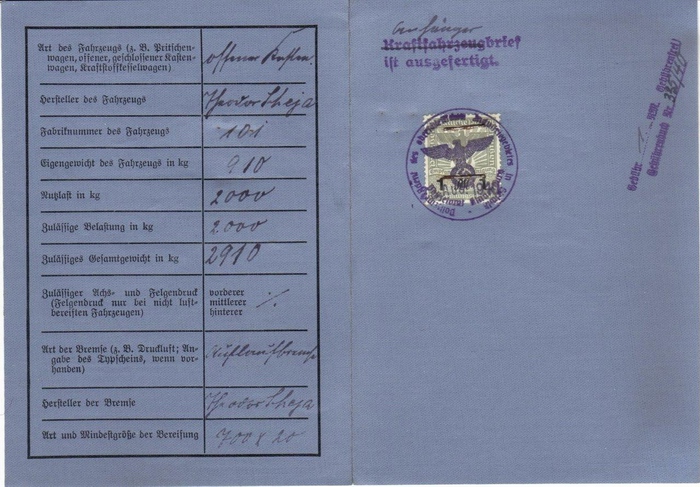 Art des Fahrzeugs (z. B. Pritschen-
wagen, offener, geschlossener Kasten-
wagen, Kraftstoffkesselwagen)
offener Kasten.
Hersteller des Fahrzeugs
Theodor Sheja
Fabriknummer des Fahrzeugs
101
Eigengewicht des Fahrzeugs in kg
910
Nutzlast in kg
2000
Zulässige Belastung in kg
2.000
Zulässiges Gesamtgewicht in kg
2910
Zulässiger Achs- und Felgendruck
(Felgendruck nur bei nicht luft-
bereiften Fahrzeugen)
vorderer
mittlerer
hinterer
Art der Bremse (z. B. Druckluft; An-
gabe des Typscheins, wenn vor-
handen)
Auflaufbremse
Hersteller der Bremse
Theodor Sheja
Art und Mindestgröße der Bereifung
700 x 20
Anhänger
Kraftfahrzeugbrief
ist ausgefertigt.
Gebühr.
Gebührenbuch Nr.